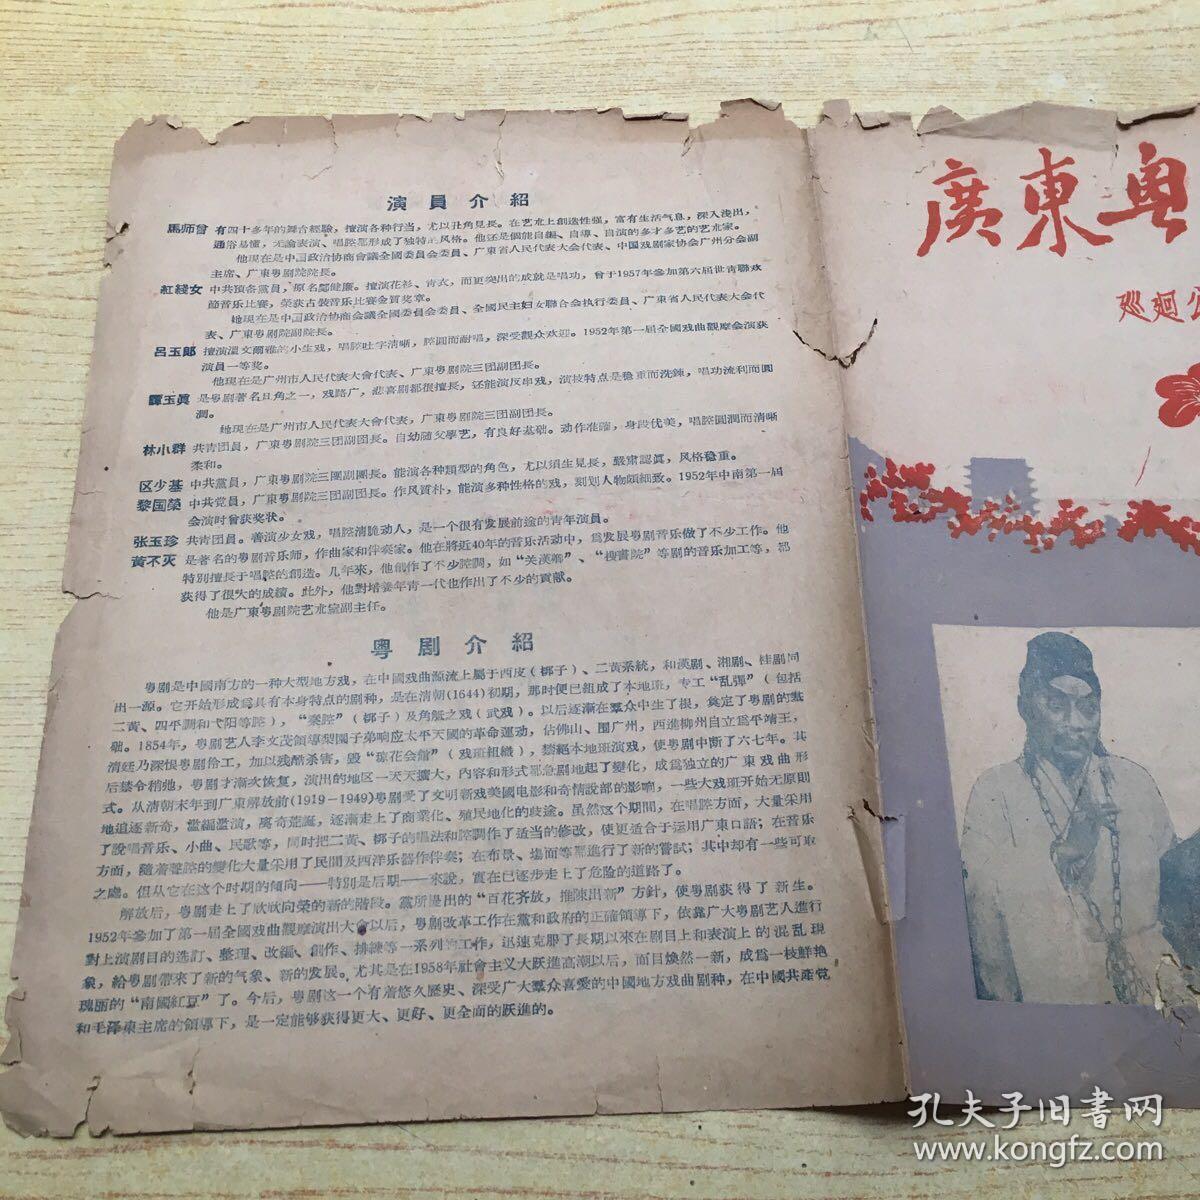 演員介紹
馬师曾 有四十多年的舞台經驗，擅演各种行当，尤以丑角見長。在艺朮上創造性强，富有生活气息，深入浅出，
通俗易懂，无論表演、唱腔都形成了独特的风格。他还是個能自編、自導、自演的多才多艺的艺朮家。
他現在是中国政治协商會議全國委員会委員、广東省人民代表大会代表、中国戏剧家协会广州分会副
主席、广東粤剧院院長。
紅綫女 中共預备党員，原名鄺健廉。擅演花衫、青衣，而更突出的成就是唱功，曾于1957年参加第六届世青聯欢
節音乐比賽，荣获古裝音乐比賽金質奖章。
她現在是中国政治协商會議全國委員会委員、全國民主妇女聯合会执行委員、广東省人民代表大会代
表、广東粤剧院副院長。
呂玉郎 擅演溫文爾雅的小生戏，唱腔吐字清晰，腔圓而耐唱，深受觀众欢迎。1952年第一届全國戏曲觀摩会演获
演員一等奖。
他現在是广州市人民代表大會代表、广東粤剧院三团副团長。
譚玉眞 是粤剧著名旦角之一，戏路广，悲喜剧都很擅長，还能演反串戏，演技特点是稳重而洗鍊，唱功流利而圓
潤。
她現在是广州市人民代表大會代表，广東粤剧院三团副团長。
林小群 共青团員，广東粤剧院三团副团長。自幼随父學艺，有良好基础。动作准確，身段优美，唱腔圓潤而清晰
柔和。
区少基 中共黨員，广東粤剧院三團副團長。能演各种類型的角色，尤以須生見長，嚴肅認眞，风格稳重。
黎国榮 中共党員，广東粤剧院三团副团長。作风質朴，能演多种性格的戏，刻划人物頗細致。1952年中南第一届
会演时曾获奖状。
张玉珍 共青团員。善演少女戏，唱腔清脆动人，是一个很有发展前途的青年演員。
黃不灭 是著名的粤剧音乐师，作曲家和伴奏家。他在將近40年的音乐活动中，爲发展粤剧音乐做了不少工作。他
特別擅長于唱腔的創造。几年來，他創作了不少腔調，如“关漢卿”、“搜書院”等剧的音乐加工等，都
获得了很大的成績。此外，他對培养年青一代也作出了不少的貢献。
他是广東粤剧院艺朮室副主任。
粤剧介紹
粤剧是中國南方的一种大型地方戏，在中國戏曲源流上屬于西皮（梆子）、二黃系統，和漢剧、湘剧、桂剧同
出一源。它开始形成爲具有本身特点的剧种，是在清朝(1644)初期，那时便已組成了本地班，专工“乱彈”（包括
二黃、四平調和弋阳等腔），“秦腔”（梆子）及角觝之戏（武戏）。以后逐漸在羣众中生了根，奠定了粤剧的基
础。1854年，粤剧艺人李文茂領導梨園子弟响应太平天國的革命運动，佔佛山、围广州，西進柳州自立爲平靖王，
清廷乃深恨粤剧伶工，加以残酷杀害，毁“琼花会館”（戏班組織），禁絕本地班演戏，使粤剧中断了六七年。其
后禁令稍弛，粤剧才漸次恢复，演出的地区一天天擴大，內容和形式都急剧地起了變化，成爲独立的广東戏曲形
式。从清朝末年到广東解放前(1919－1949)粤剧受了文明新戏美國电影和奇情說部的影响，一些大戏班开始无原則
地追逐新奇，濫編濫演，离奇荒誕，逐漸走上了商業化、殖民地化的歧途。虽然这个期間，在唱腔方面，大量采用
了說唱音乐、小曲、民歌等，同时把二黃、梆子的唱法和腔調作了适当的修改，使更适合于运用广東口語；在音乐
方面，隨着聲腔的變化大量采用了民間及西洋乐器作伴奏；在布景、場面等都進行了新的嘗試；其中却有一些可取
之處。但从它在这个时期的傾向——特別是后期——來說，實在已逐步走上了危险的道路了。
解放后，粤剧走上了欣欣向榮的新的階段。黨所提出的“百花齐放，推陳出新”方針，使粤剧获得了新生。
1952年参加了第一届全國戏曲觀摩演出大會以后，粤剧改革工作在黨和政府的正確領導下，依靠广大粤剧艺人進行
對上演剧目的选訂、整理、改編、創作、排練等一系列的工作，迅速克服了長期以來在剧目上和表演上的混乱現
象，給粤剧帶來了新的气象、新的发展。尤其是在1958年社會主义大跃進高潮以后，面目煥然一新，成爲一枝鮮艳
瑰丽的“南國紅豆”了。今后，粤剧这一个有着悠久歷史、深受广大羣众喜爱的中國地方戏曲剧种，在中國共產党
和毛澤東主席的領導下，是一定能够获得更大、更好、更全面的跃進的。
廣東粤
巡廻公
孔夫子旧書网
www.kongfz.com